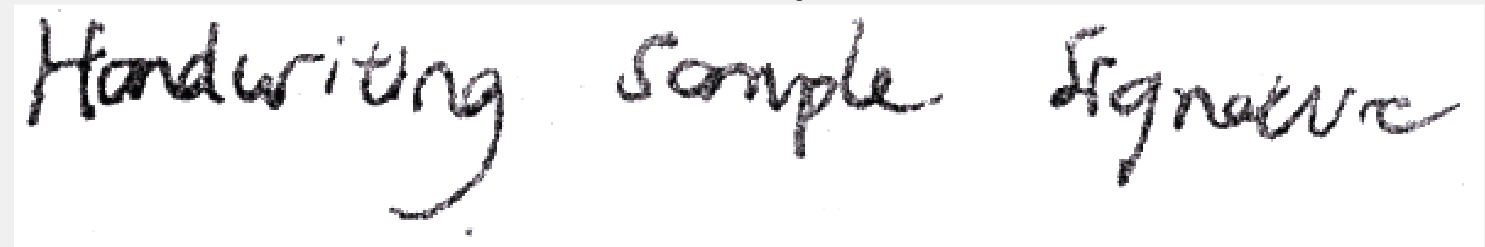 Handwriting Sample Signature